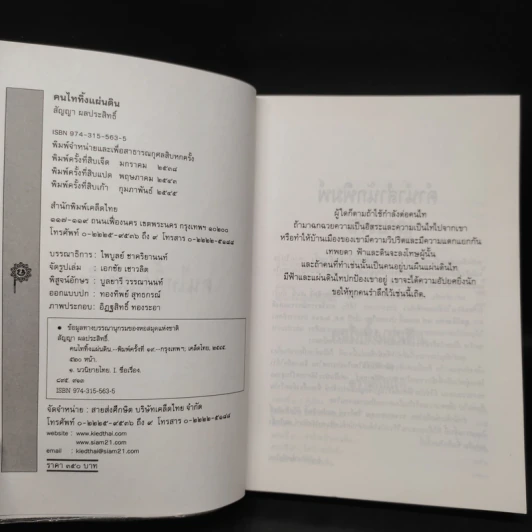 คนไททิ้งแผ่นดิน
สัญญา ผลประสิทธิ์
ISBN 974-315-563-5
พิมพ์จำหน่ายและเพื่อสาธารณกุศลสิบหกครั้ง
พิมพ์ครั้งที่สิบเจ็ด มกราคม ๒๕๓๘
พิมพ์ครั้งที่สิบแปด พฤษภาคม ๒๕๔๓
พิมพ์ครั้งที่สิบเก้า กุมภาพันธ์ ๒๕๔๕
สำนักพิมพ์เคล็ดไทย
๑๑๗-๑๑๙ ถนนเฟื่องนคร เขตพระนคร กรุงเทพฯ ๑๐๒๐๐
โทรศัพท์ ๐-๒๒๒๕-๙๕๓๖ ถึง ๙ โทรสาร ๐-๒๒๒๒-๕๑๘๘
บรรณาธิการ : ไพบูลย์ ชาครียานนท์
จัดรูปเล่ม : เอกชัย เชาวลิต
พิสูจน์อักษร : บูลยารี วรรณานนท์
ออกแบบปก : ทองทิพย์ สุทธกรณ์
ภาพประกอบ : อิฏฐสิทธิ์ ทองระอา
• ข้อมูลทางบรรณานุกรมของหอสมุดแห่งชาติ
สัญญา ผลประสิทธิ์.
คนไททิ้งแผ่นดิน.--พิมพ์ครั้งที่ ๑๙.--กรุงเทพฯ: เคล็ดไทย, ๒๕๔๕.
๕๒๐ หน้า.
๑. นวนิยายไทย. I. ชื่อเรื่อง.
๘๙๕. ๙๑๓
ISBN 974-315-563-5
จัดจำหน่าย : สายส่งศึกษิต บริษัทเคล็ดไทย จำกัด
โทรศัพท์ ๐-๒๒๒๕-๙๕๓๖ ถึง ๙ โทรสาร ๐-๒๒๒๒-๕๑๘๘
website : www.kledthai.com
www.siam21.com
email : kledthai@siam21.com
ราคา ๓๕๐ บาท
ผู้ใดก็ตามถ้าใช้กำลังต่อคนไท
ถ้ามาฉกฉวยความเป็นอิสระและความเป็นไทไปจากเขา
หรือทำให้บ้านเมืองของเขามีความวิปริตและมีความแตกแยกกัน
เทพยดา ฟ้าและดินจะลงโทษผู้นั้น
และถ้าคนที่ทำเช่นนั้นเป็นคนอยู่บนผืนแผ่นดินไท
มีฟ้าและแผ่นดินไทปกป้องเขาอยู่ เขาจะได้ความอัปยศยิ่งนัก
ขอให้ทุกคนรำลึกไว้เช่นนี้เถิด.